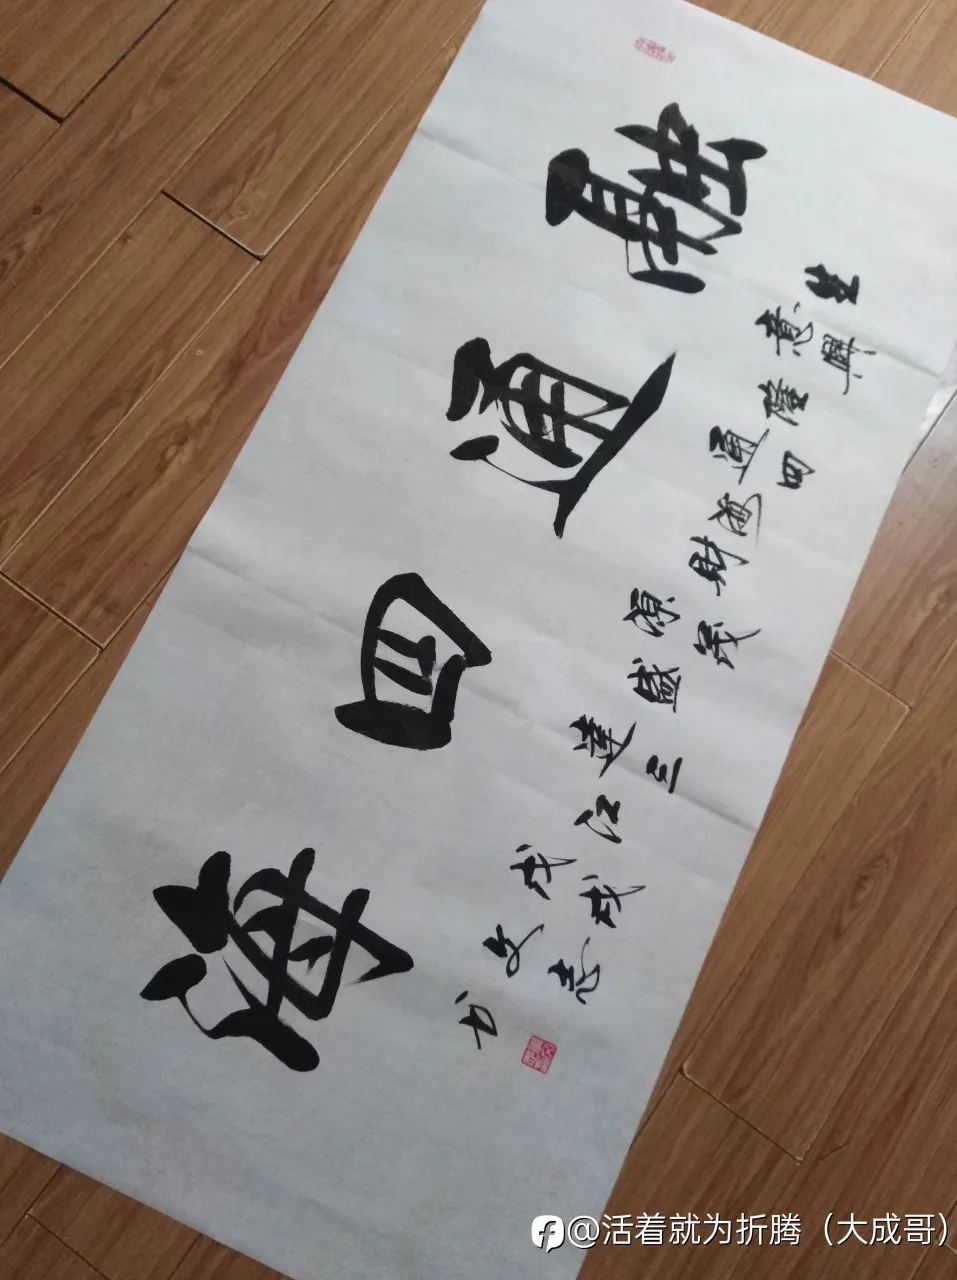 寶通四海
生意
興隆通
四海
財源
茂盛達
三江戊
戌文
志书
@活着就为折腾（大成哥）